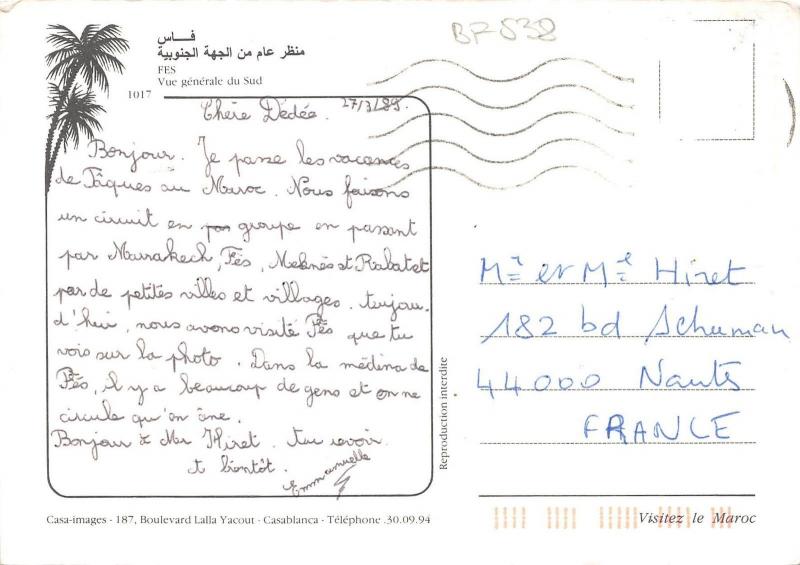 BF 532
فــاس
منظر عام من الجهة الجنوبية
FES
Vue générale du Sud
1017
27/3/89
Chère Dédée.
Bonjour. Je passe les vacances
de Pâques au Maroc. Nous faisons
un circuit en groupe en passant
par Marrakech, Fès, Meknès et Rabat et
par de petites villes et villages.
d'hui, nous avons visité Fès que tu
vois sur la photo. Dans la médina de
Fès, il y a beaucoup de gens et on ne
circule qu'en âne.
Bonjour à Mr Hiret. revoir
bientôt.
Emmanuelle
Reproduction interdite
Mr et Mme Hiret
182 bd Schuman
44000 Nantes
FRANCE
Casa-images - 187, Boulevard Lalla Yacout - Casablanca - Téléphone .30.09.94
Visitez le Maroc